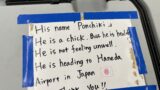 His name Ponchiki !!
He is a chick. But he is healthy
He is not feeling unwell.
He is heading to Haneda
Airport in Japan
you !!